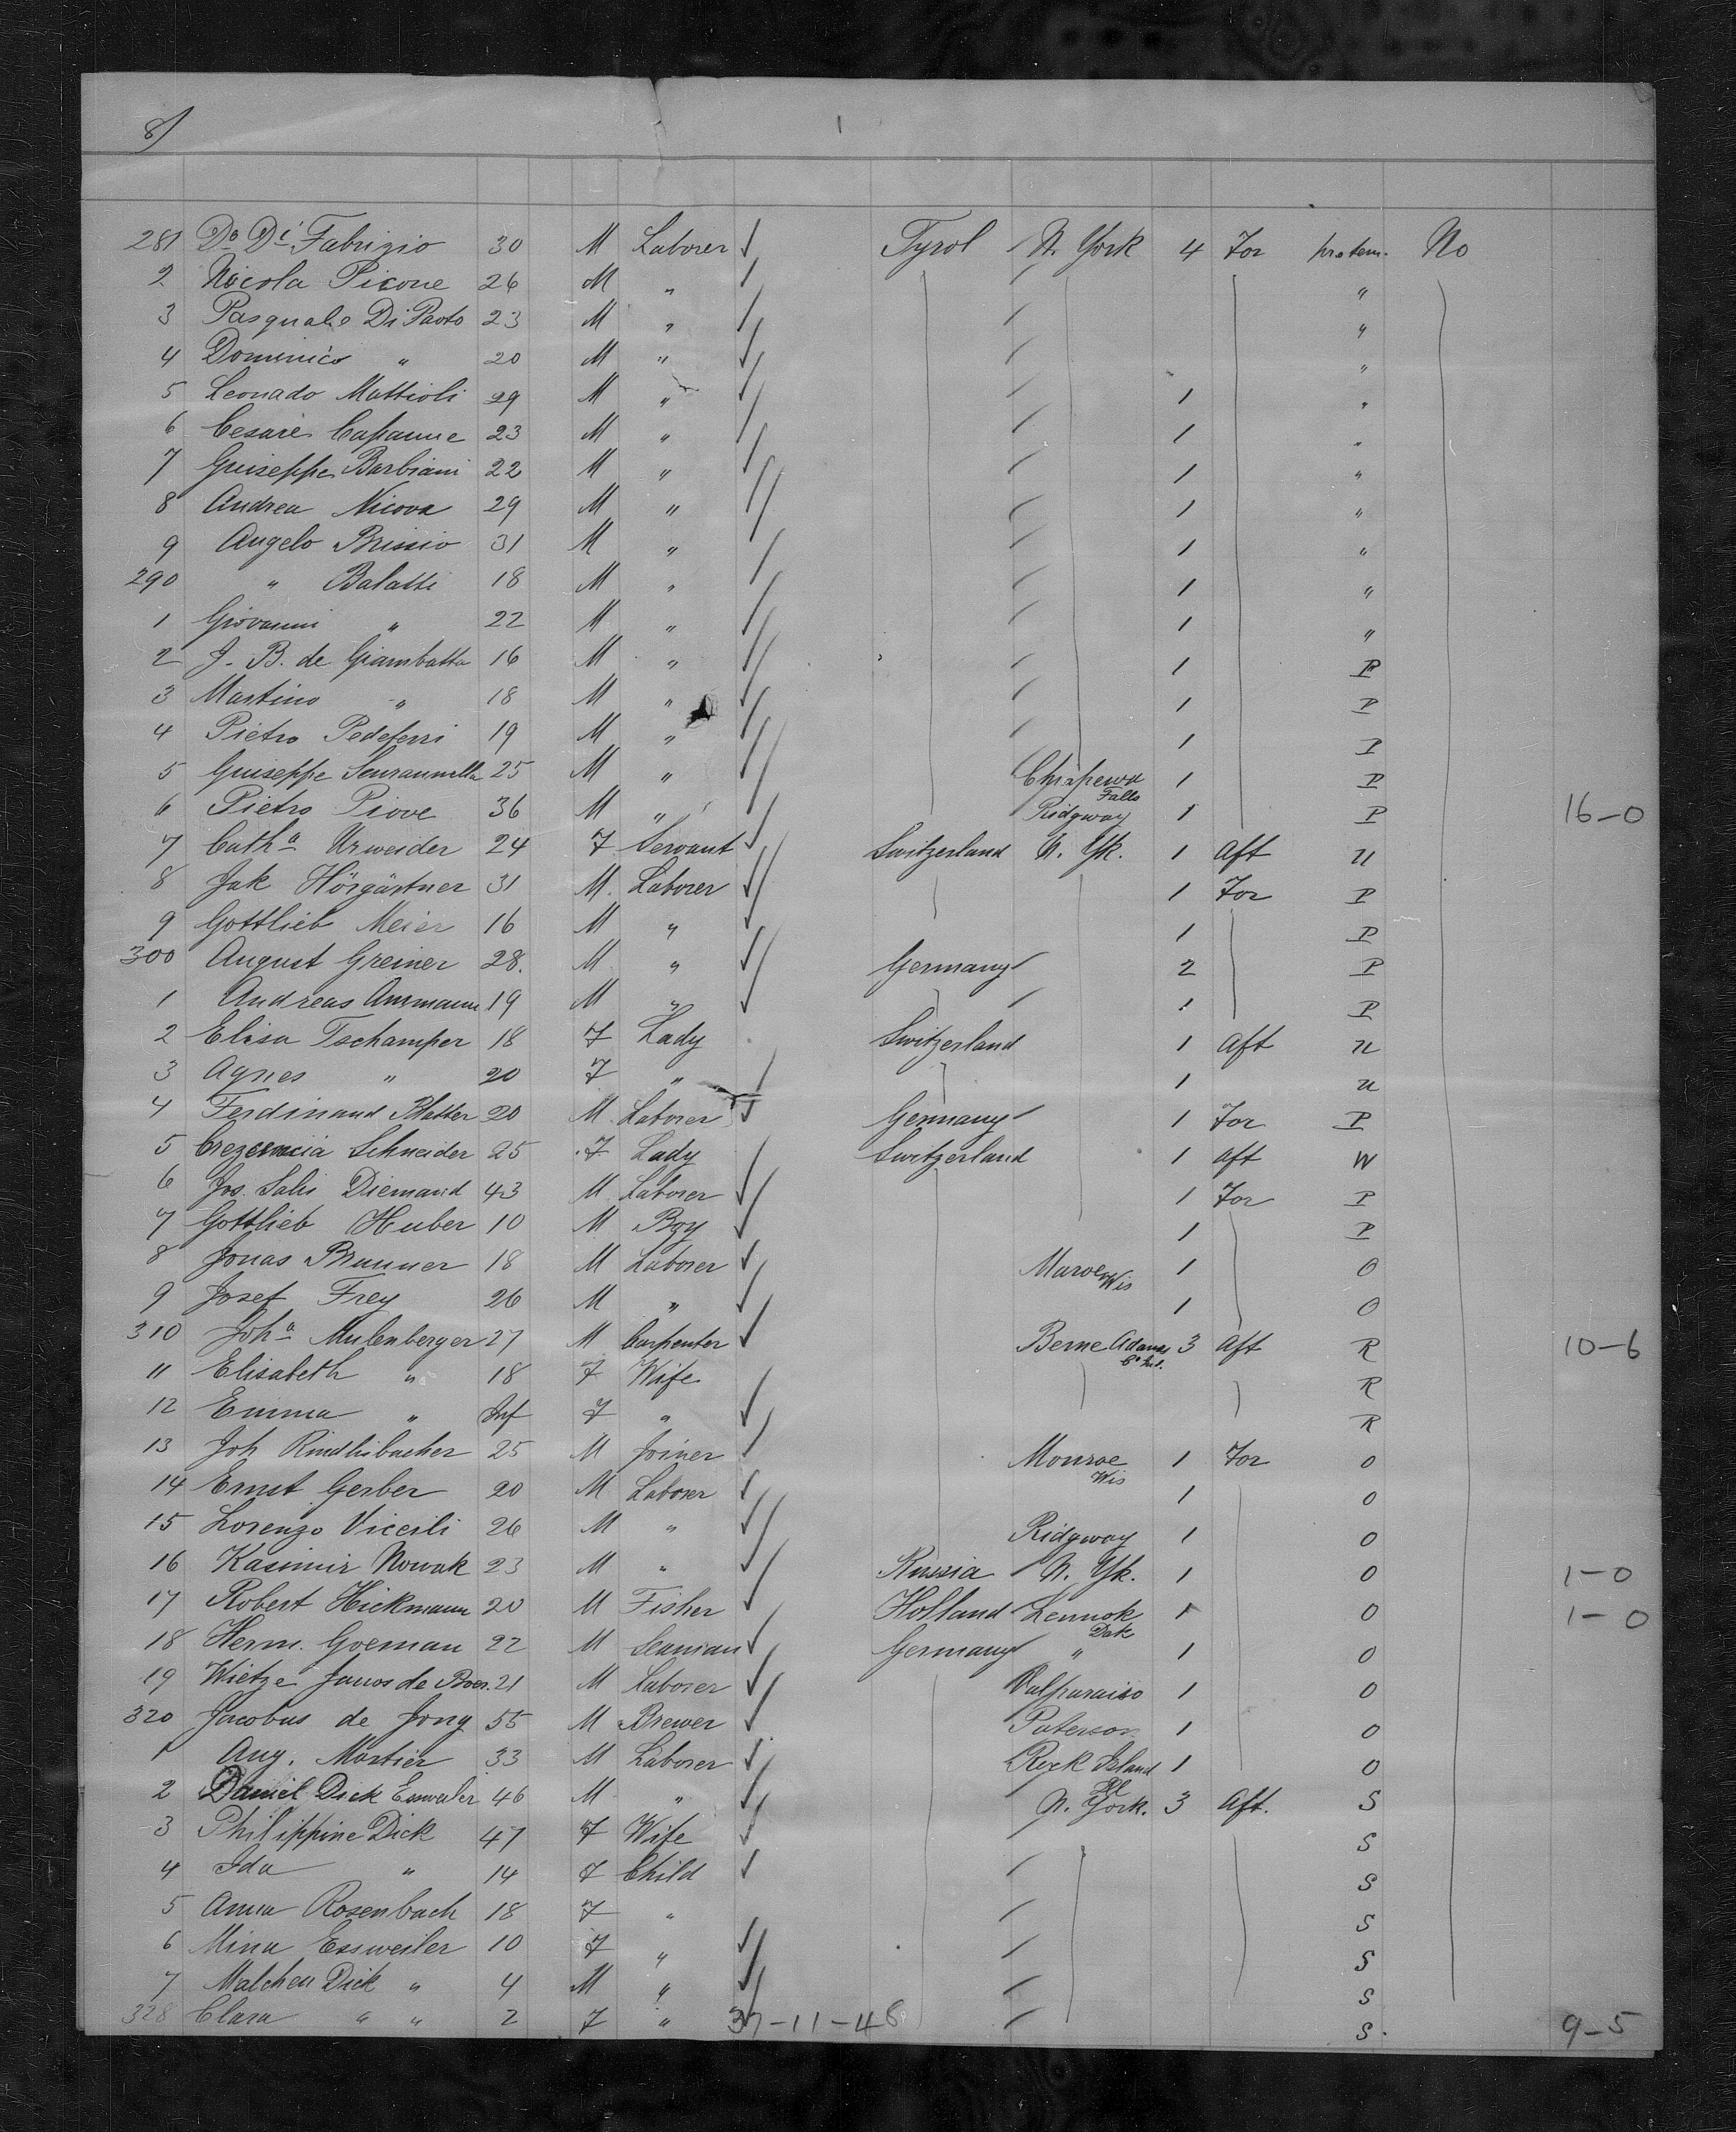 8)
281 Do Di Fabrizio 30 M Laborer Tyrol N. York 4 For protem. No
2 Nicola Picone 26 M " "
3 Pasquale Di Paoto 23 M " "
4 Dominico " 20 M " "
5 Leonado Mattioli 29 M " 1 "
6 Cesare Capanne 23 M " 1 "
7 Guiseppe Barbiani 22 M " 1 "
8 Andrea Nicova 29 M " 1 "
9 Angelo Brissio 31 M " 1 "
290 " Balatti 18 M " 1 "
1 Giovanni " 22 M " 1 "
2 J. B. de Giambatta 16 M " 1 P
3 Martino " 18 M " 1 P
4 Pietro Pedeferri 19 M " 1 P
5 Guiseppe 25 M " Chippewa Falls 1 P
6 Pietro Piove 36 M " Ridgway 1 P 16-0
7 Catha Urweider 24 F Servant Switzerland N. Yk. 1 Aft U
8 Jak Hörgärtner 31 M. Laborer 1 For P
9 Gottlieb Meier 16 M " 1 P
300 August Greiner 28. M " Germany 2 P
1 Andreas Ammann 19 M " 1 P
2 Elisa Tschamper 18 F Lady Switzerland 1 Aft U
3 Agnes " 20 F " 1 U
4 Ferdinand Blatter 20 M. Laborer Germany 1 For P
5 Schneider 25 F Lady Switzerland 1 Aft W
6 Jos. Salis Diemand 43 M Laborer 1 For P
7 Gottlieb Huber 10 M Boy 1 P
8 Jonas Brunner 18 M Laborer Maroe Wis 1 O
9 Josef Frey 26 M " 1 O
310 Joha Mulenberger 27 M Carpenter Berne Adams Co Ind. 3 Aft R 10-6
11 Elisabeth " 18 F Wife R
12 Emma " Inf F " R
13 Joh Rindlisbacher 25 M Joiner Monroe Wis 1 For O
14 Ernst Gerber 20 M Laborer 1 O
15 Lorenzo Viccili 26 M " Ridgway 1 O
16 Kasimir Nowak 23 M " Russia N. Yk. 1 O 1-0
17 Robert Hickmann 20 M Fisher Holland Lennok Dak 1 O 1-0
18 Herm. Goeman 22 M Seaman Germany " 1 O
19 Wietze Janos de Boer. 21 M Laborer Valparaiso 1 O
320 Jacobus de Jong 55 M Brewer Paterson 1 O
1 Aug. Mortier 33 M Laborer Rock Island Ill 1 O
2 Daniel Dick Essweiler 46 M " N. York. 3 Aft. S
3 Philippine Dick 47 F Wife S
4 Ida " 14 F Child S
5 Anna Rosenbach 18 F " S
6 Mina Essweiler 10 F " S
7 Malchen Dick " 4 M " S
328 Clara " " 2 F " 37-11-48 S. 9-5